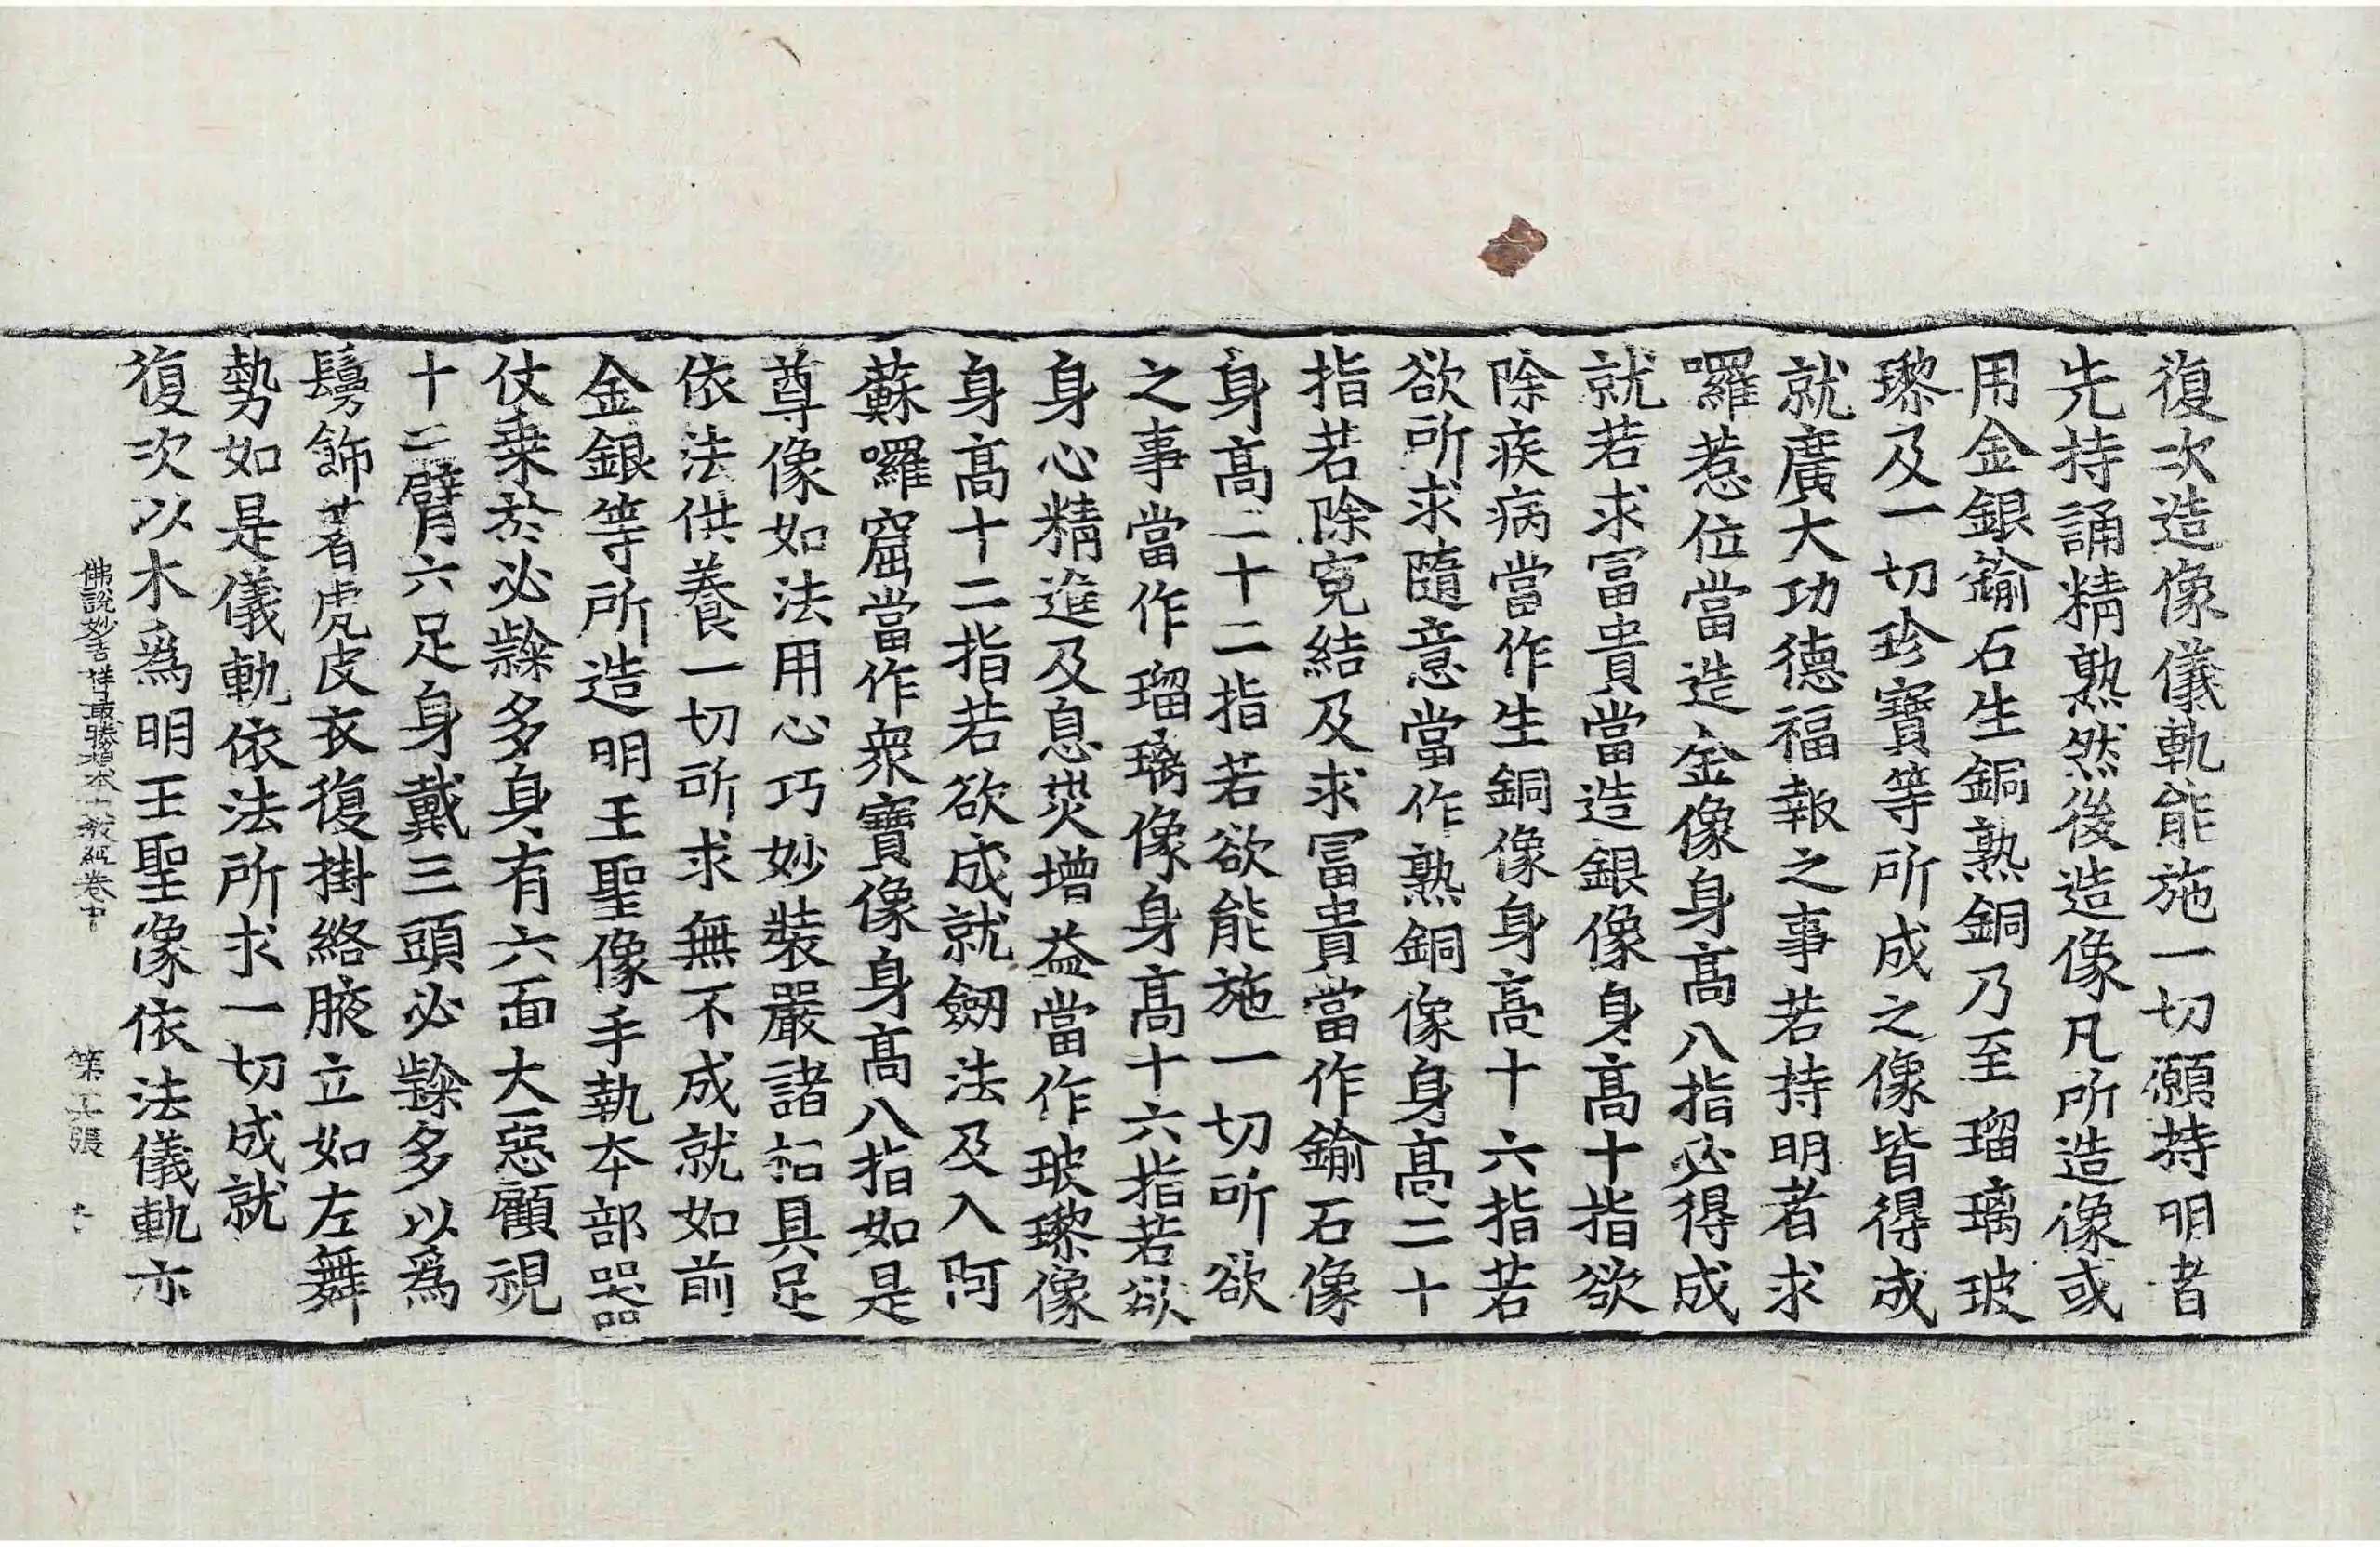 復次造像儀軌能施一切願持明者
先持誦精熟然後造像凡所造像或
用金銀鍮石生銅熟銅乃至瑠璃玻
瓈及一切珍寶等所成之像皆得成
就廣大功德福報之事若持明者求
囉惹位當造金像身髙八指必得成
就若求冨貴當造銀像身髙十指欲
除疾病當作生銅像身髙十六指若
欲所求隨意當作熟銅像身髙二十
指若除寃結及求冨貴當作鍮石像
身髙二十二指若欲能施一切所欲
之事當作瑠璃像身髙十六指若欲
身心精進及息災增益當作玻瓈像
身髙十二指若欲成就劒法及入阿
蘇囉窟當作衆寶像身髙八指如是
尊像如法用心巧妙裝嚴諸相具足
依法供養一切所求無不成就如前
金銀等所造明王聖像手執本部器
仗乗於必隸多身有六面大惡顧視
十二臂六足身戴三頭必隸多以爲
鬘飾著虎皮衣復掛絡腋立如左舞
勢如是儀軌依法所求一切成就
復次以木爲明王聖像依法儀軌亦
佛說妙吉祥最勝根本大教經卷中 第 張